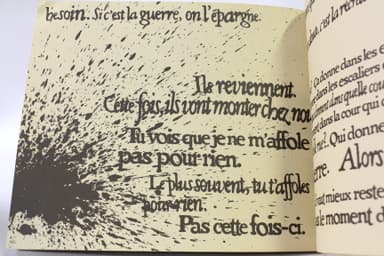 besoin. Si c'est la guerre, on l'épargne.
Ils reviennent.
Cette fois, ils vont monter chez nou
Tu vois que je ne m'affole
pas pour rien.
Le plus souvent, tu t'affoles
pour rien.
Pas cette fois-ci.
c'est la
Ça donne dans les
dans les escaliers
dans quelle
dans la cour qui
? Qui donne
Alors
aut mieux reste
le moment d